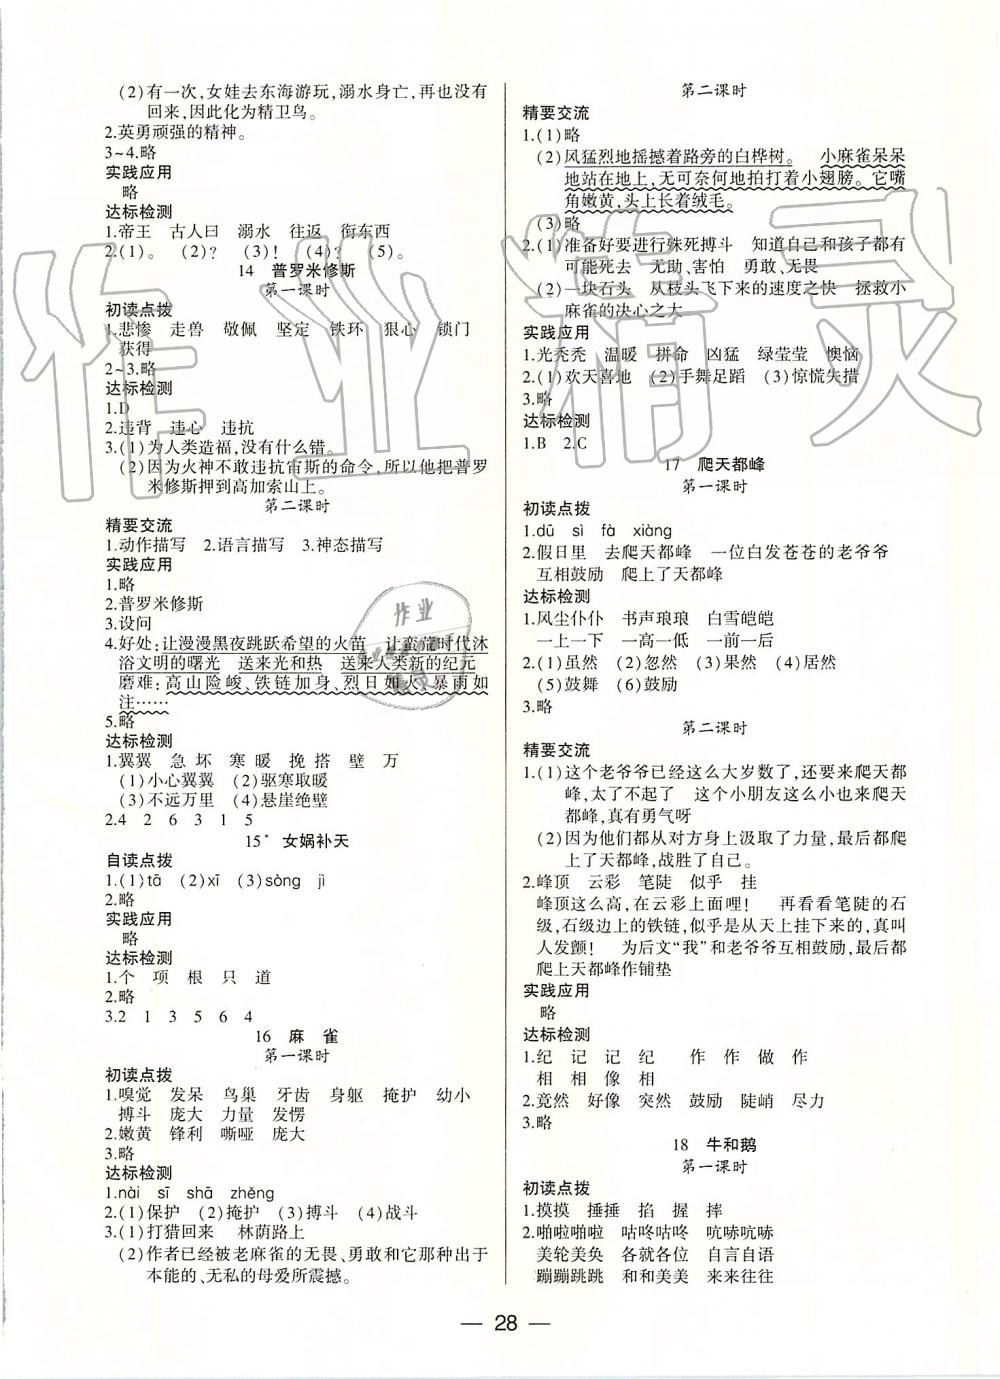 (2)有一次,女娃去东海游玩,溺水身亡,再也没有
回来,因此化为精卫鸟。
2.英勇顽强的精神。
3~4.略
实践应用
略
达标检测
1.帝王 古人曰 溺水 往返 衔东西
2.(1)。 (2)? (3)! (4)? (5)。
14 普罗米修斯
第一课时
初读点拨
1.悲惨 走兽 敬佩 坚定 铁环 狠心 锁门
获得
2~3.略
达标检测
1.D
2.违背 违心 违抗
3.(1)为人类造福,没有什么错。
(2)因为火神不敢违抗宙斯的命令,所以他把普罗
米修斯押到高加索山上。
第二课时
精要交流
1.动作描写 2.语言描写 3.神态描写
实践应用
1.略
2.普罗米修斯
3.设问
4.好处:让漫漫黑夜跳跃希望的火苗 让蛮荒时代沐
浴文明的曙光 送来光和热 送来人类新的纪元
磨难:高山险峻、铁链加身、烈日如火、暴雨如
注……
5.略
达标检测
1.翼翼 急 坏 寒 暖 挽 搭 壁 万
(1)小心翼翼 (2)驱寒取暖
(3)不远万里 (4)悬崖绝壁
2.4 2 6 3 1 5
15* 女娲补天
自读点拨
1.(1)tā (2)xī (3)sòng jì
实践应用
略
达标检测
1.个 项 根 只 道
2.略
3.2 1 3 5 6 4
16 麻 雀
第一课时
初读点拨
1.嗅觉 发呆 鸟巢 牙齿 身躯 掩护 幼小
搏斗 庞大 力量 发愣
2.嫩黄 锋利 嘶哑 庞大
3.略
达标检测
1.nài sī shā zhěng
2.(1)保护 (2)掩护 (3)搏斗 (4)战斗
3.(1)打猎回来 林荫路上
(2)作者已经被老麻雀的无畏、勇敢和它那种出于
本能的、无私的母爱所震撼。
第二课时
精要交流
1.(1)略
(2)风猛烈地摇撼着路旁的白桦树。 小麻雀呆呆
地站在地上,无可奈何地拍打着小翅膀。它嘴
角嫩黄,头上长着绒毛。
(3)略
2.(1)准备好要进行殊死搏斗 知道自己和孩子都有
可能死去 无助、害怕 勇敢、无畏
(2)一块石头 从枝头飞下来的速度之快 拯救小
麻雀的决心之大
实践应用
1.光秃秃 温暖 拼命 凶猛 绿莹莹 懊恼
2.(1)欢天喜地 (2)手舞足蹈 (3)惊慌失措
3.略
达标检测
1.B 2.C
17 爬天都峰
第一课时
初读点拨
1.dū sì fà xiàng
2.假日里 去爬天都峰 一位白发苍苍的老爷爷
互相鼓励 爬上了天都峰
达标检测
1.风尘仆仆 书声琅琅 白雪皑皑
一上一下 一高一低 一前一后
2.(1)虽然 (2)忽然 (3)果然 (4)居然
(5)鼓舞 (6)鼓励
3.略
第二课时
精要交流
1.(1)这个老爷爷已经这么大岁数了,还要来爬天都
峰,太了不起了 这个小朋友这么小也来爬天
都峰,真有勇气呀
(2)因为他们都从对方身上汲取了力量,最后都爬
上了天都峰,战胜了自己。
2.峰顶 云彩 笔陡 似乎 挂
峰顶这么高,在云彩上面哩! 再看看笔陡的石
级,石级边上的铁链,似乎是从天上挂下来的,真叫
人发颤! 为后文“我”和老爷爷互相鼓励,最后都
爬上天都峰作铺垫
实践应用
略
达标检测
1.纪 记 记 纪 作 作 做 作
相 相 像 相
2.竟然 好像 突然 鼓励 陡峭 尽力
3.略
18 牛和鹅
第一课时
初读点拨
1.摸摸 捶捶 掐 握 摔
2.啪啦啪啦 咕咚咕咚 吭哧吭哧
美轮美奂 各就各位 自言自语
蹦蹦跳跳 和和美美 来来往往
— 28 —
作业精灵
作业